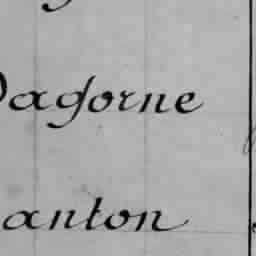 Dagorne
anton